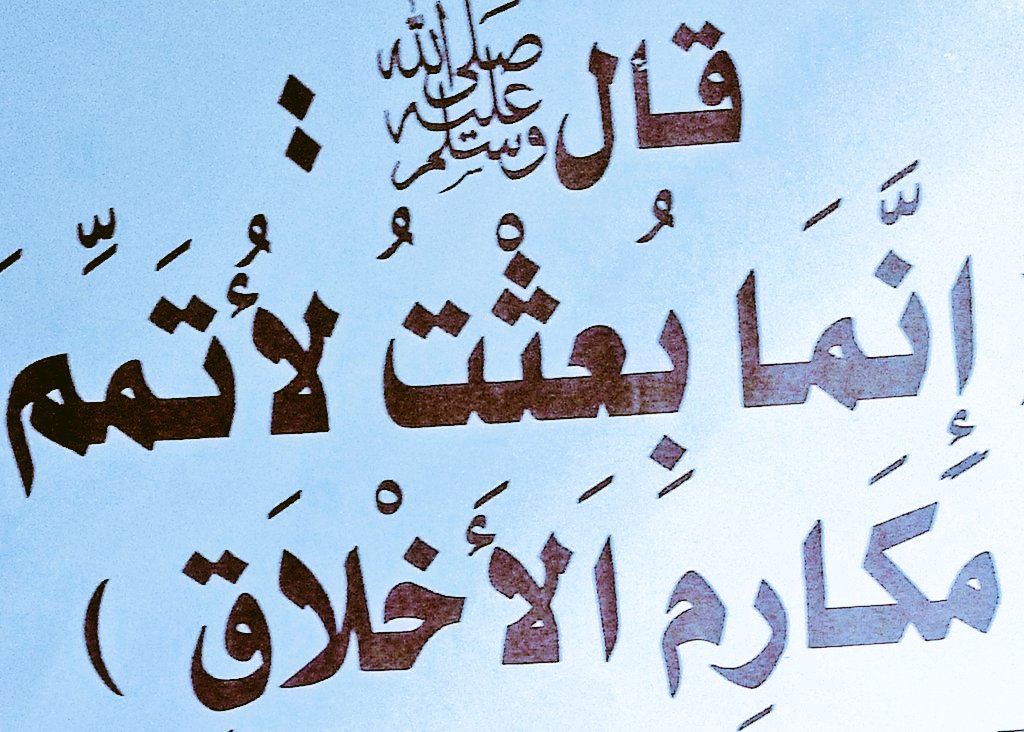 قال صلى الله عليه وسلم :
إِنَّمَا بُعِثْتُ لأُتَمِّمَ
مَكَارِمِ الأَخْلاَق )